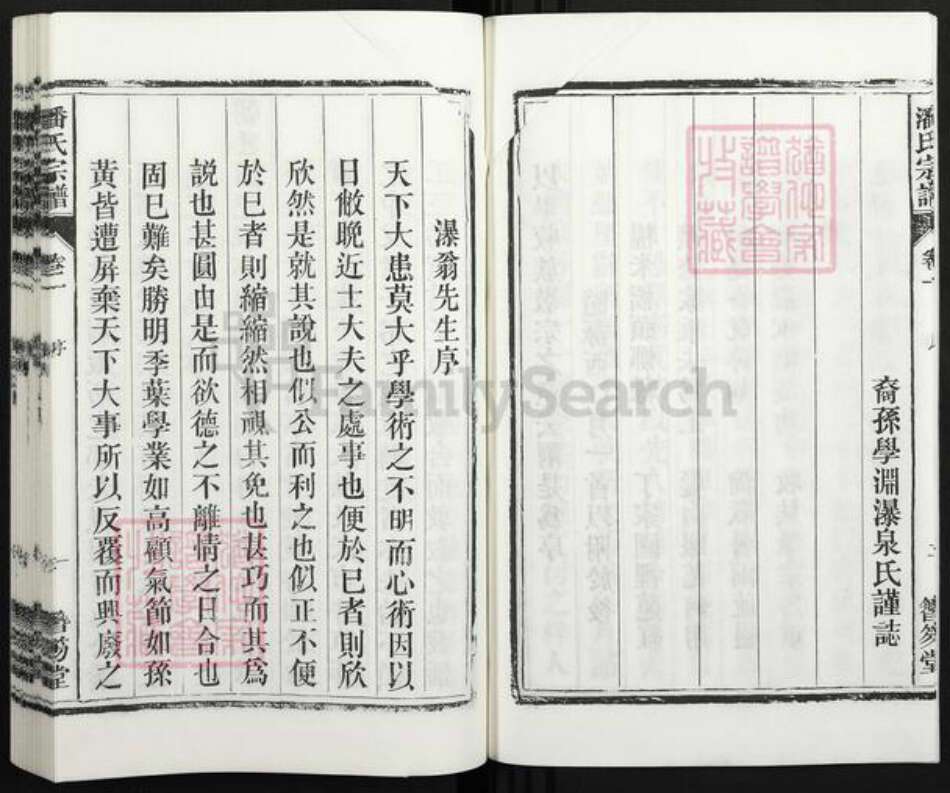 潘氏宗譜
卷一
簪笏堂
裔孫學淵瀑泉氏謹誌
瀑翁先生序
天下大患莫大乎學術之不明而心術因以
日敝晚近士大夫之處事也便於已者則欣
欣然是就其說也似公而利之也似正不便
於已者則縮縮然相視其免也甚巧而其為
說也甚圓由是而欲德之不離情之日合也
固已難矣勝明季葉學業如高顧氣節如孫
黃皆遭屏棄天下大事所以反覆而興廢之
潘氏宗譜
卷一
序
一
簪笏堂
FamilySearch